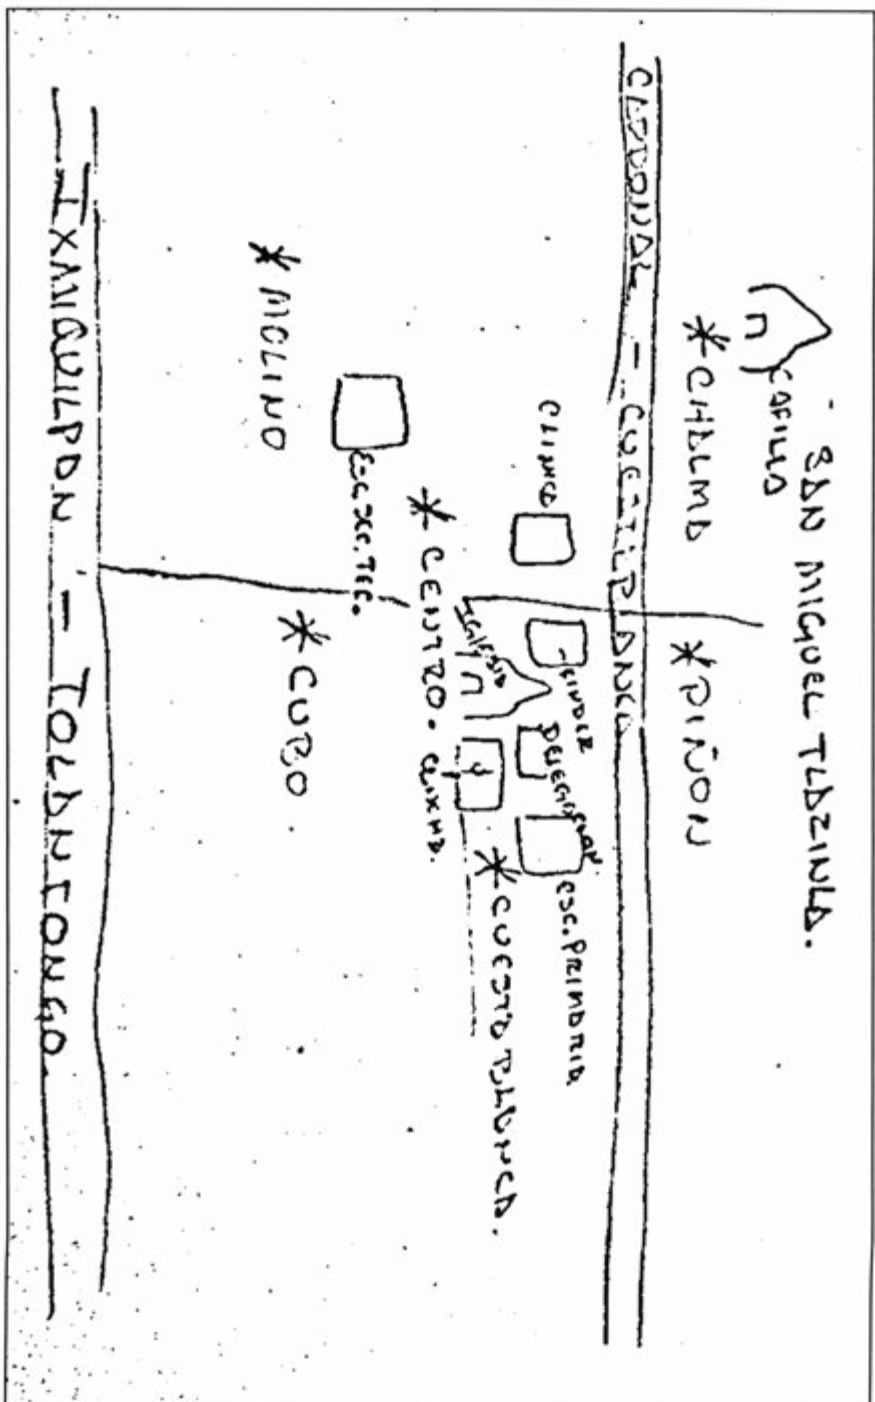 SAN MIGUEL TLAZINLA.
CAPILLA
* CHALMA
* PIÑON
CARDONAL - CUESTA BLANCA
CLINICA
KINDER
DELEGACION.
ESC. PRIMARIA
IGLESIA
* CUESTA BLANCA.
* CENTRO.
ESC. SEC. TEC.
* MOLINO
* CUBO
IXMIQUILPAN - TOLANTONGO.